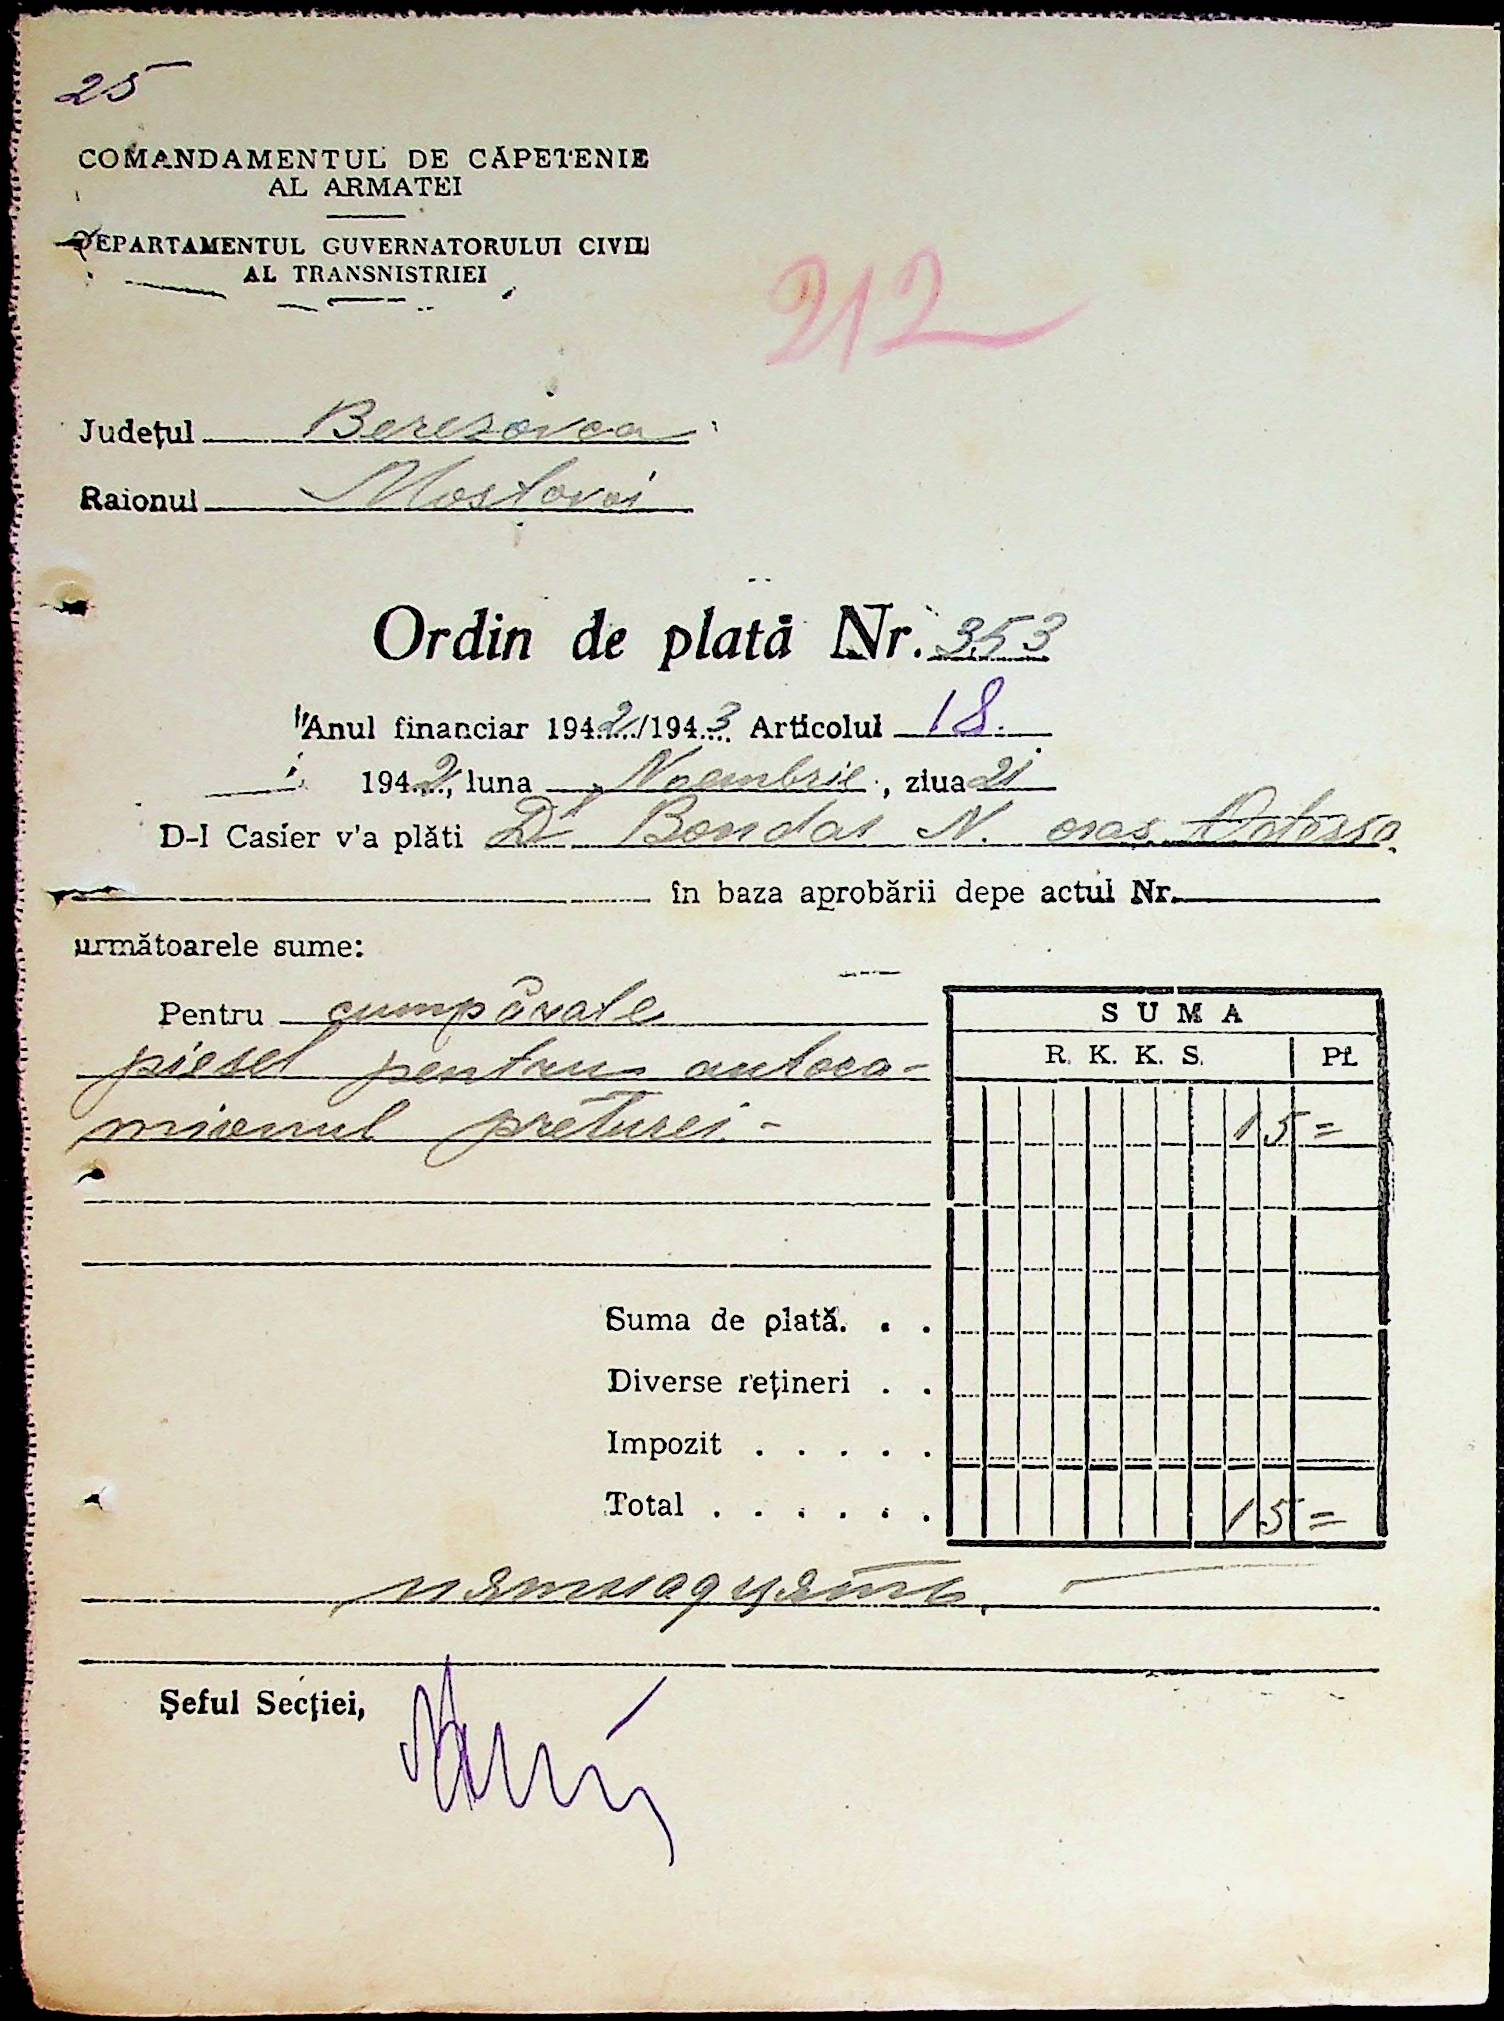 25
COMANDAMENTUL DE CĂPETENIE
AL ARMATEI
DEPARTAMENTUL GUVERNATORULUI CIVIL
AL TRANSNISTRIEI
212
Județul Berezovca
Raionul Mostovoi
Ordin de plată Nr. 353
Anul financiar 1942/1943 Articolul 18.
1942, luna Noembrie, ziua 21
D-l Casier v'a plăti Dl Bondar N. oras
în baza aprobării depe actul Nr.
următoarele sume:
Pentru cumpărate
piesel pentru autoca-
mionul preturei -
SUMA
R. K. K. S. Pf.
15 =
Suma de plată. . .
Diverse rețineri . .
Impozit . . . . .
Total . . . . . . 15 =
пятнадцять.
Șeful Secției,